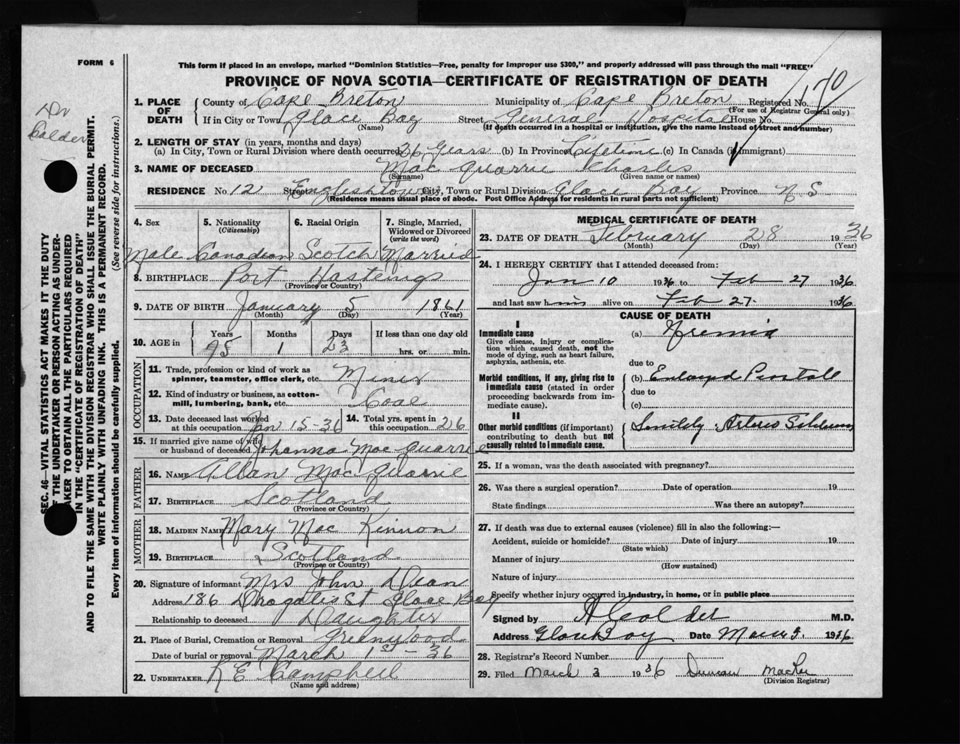 FORM 6
This form if placed in an envelope, marked "Dominion Statistics—Free, penalty for improper use $300," and properly addressed will pass through the mail "FREE"
PROVINCE OF NOVA SCOTIA—CERTIFICATE OF REGISTRATION OF DEATH
170
Dr Calder
SEC. 46—VITAL STATISTICS ACT MAKES IT THE DUTY
OF THE UNDERTAKER OR PERSON ACTING AS UNDER-
TAKER TO OBTAIN ALL THE PARTICULARS REQUIRED
IN THE "CERTIFICATE OF REGISTRATION OF DEATH"
AND TO FILE THE SAME WITH THE DIVISION REGISTRAR WHO SHALL ISSUE THE BURIAL PERMIT.
WRITE PLAINLY WITH UNFADING INK. THIS IS A PERMANENT RECORD.
Every item of information should be carefully supplied. (See reverse side for instructions.)
1. PLACE OF DEATH County of Cape Breton Municipality of Cape Breton Registered No.
(For use of Registrar General only)
If in City or Town Glace Bay Street General Hospital House No.
(Name) (If death occurred in a hospital or institution, give the name instead of street and number)
2. LENGTH OF STAY (in years, months and days)
(a) In City, Town or Rural Division where death occurred 36 years (b) In Province Lifetime (c) In Canada (if immigrant)
3. NAME OF DECEASED Mac Quarrie Charles
(Surname) (Given name or names)
RESIDENCE No. 12 Street Englishtown City, Town or Rural Division Glace Bay Province N S
(Residence means usual place of abode. Post Office Address for residents in rural parts not sufficient)
4. Sex 5. Nationality (Citizenship) 6. Racial Origin 7. Single, Married, Widowed or Divorced (write the word)
Male Canadian Scotch Married
8. BIRTHPLACE Port Hastings
(Province or Country)
9. DATE OF BIRTH January 5 1861
(Month) (Day) (Year)
10. AGE in Years Months Days If less than one day old
1 23 hrs. or min.
OCCUPATION
11. Trade, profession or kind of work as spinner, teamster, office clerk, etc. Miner
12. Kind of industry or business, as cotton-mill, lumbering, bank, etc. Coal
13. Date deceased last worked at this occupation Jan 15-36 14. Total yrs. spent in this occupation 26
15. If married give name of wife or husband of deceased Johanna Mac Quarrie
FATHER
16. NAME Allan Mac Quarrie
17. BIRTHPLACE Scotland
(Province or Country)
MOTHER
18. MAIDEN NAME Mary Mac Kinnon
19. BIRTHPLACE Scotland
(Province or Country)
20. Signature of informant Mrs John Dean
Address 186 St Glace Bay
Relationship to deceased Daughter
21. Place of Burial, Cremation or Removal Greenwood
Date of burial or removal March 1st - 36
22. UNDERTAKER K E Campbell
(Name and address)
MEDICAL CERTIFICATE OF DEATH
23. DATE OF DEATH February 28 1936
(Month) (Day) (Year)
24. I HEREBY CERTIFY that I attended deceased from:
Jan 10 1936 to Feb 27 1936
and last saw him alive on Feb 27 1936
CAUSE OF DEATH
I
Immediate cause
Give disease, injury or complication which caused death, not the mode of dying, such as heart failure, asphyxia, asthenia, etc.
(a) Uremia
due to
Morbid conditions, if any, giving rise to immediate cause (stated in order proceeding backwards from immediate cause).
(b)
due to
(c)
II
Other morbid conditions (if important) contributing to death but not causally related to immediate cause.
25. If a woman, was the death associated with pregnancy?
26. Was there a surgical operation? Date of operation 19
State findings Was there an autopsy?
27. If death was due to external causes (violence) fill in also the following:—
Accident, suicide or homicide? Date of injury 19
(State which)
Manner of injury
(How sustained)
Nature of injury
Specify whether injury occurred in industry, in home, or in public place
Signed by A Calder M.D.
Address Glace Bay Date 1936
28. Registrar's Record Number
29. Filed March 3 1936 Duncan
(Division Registrar)